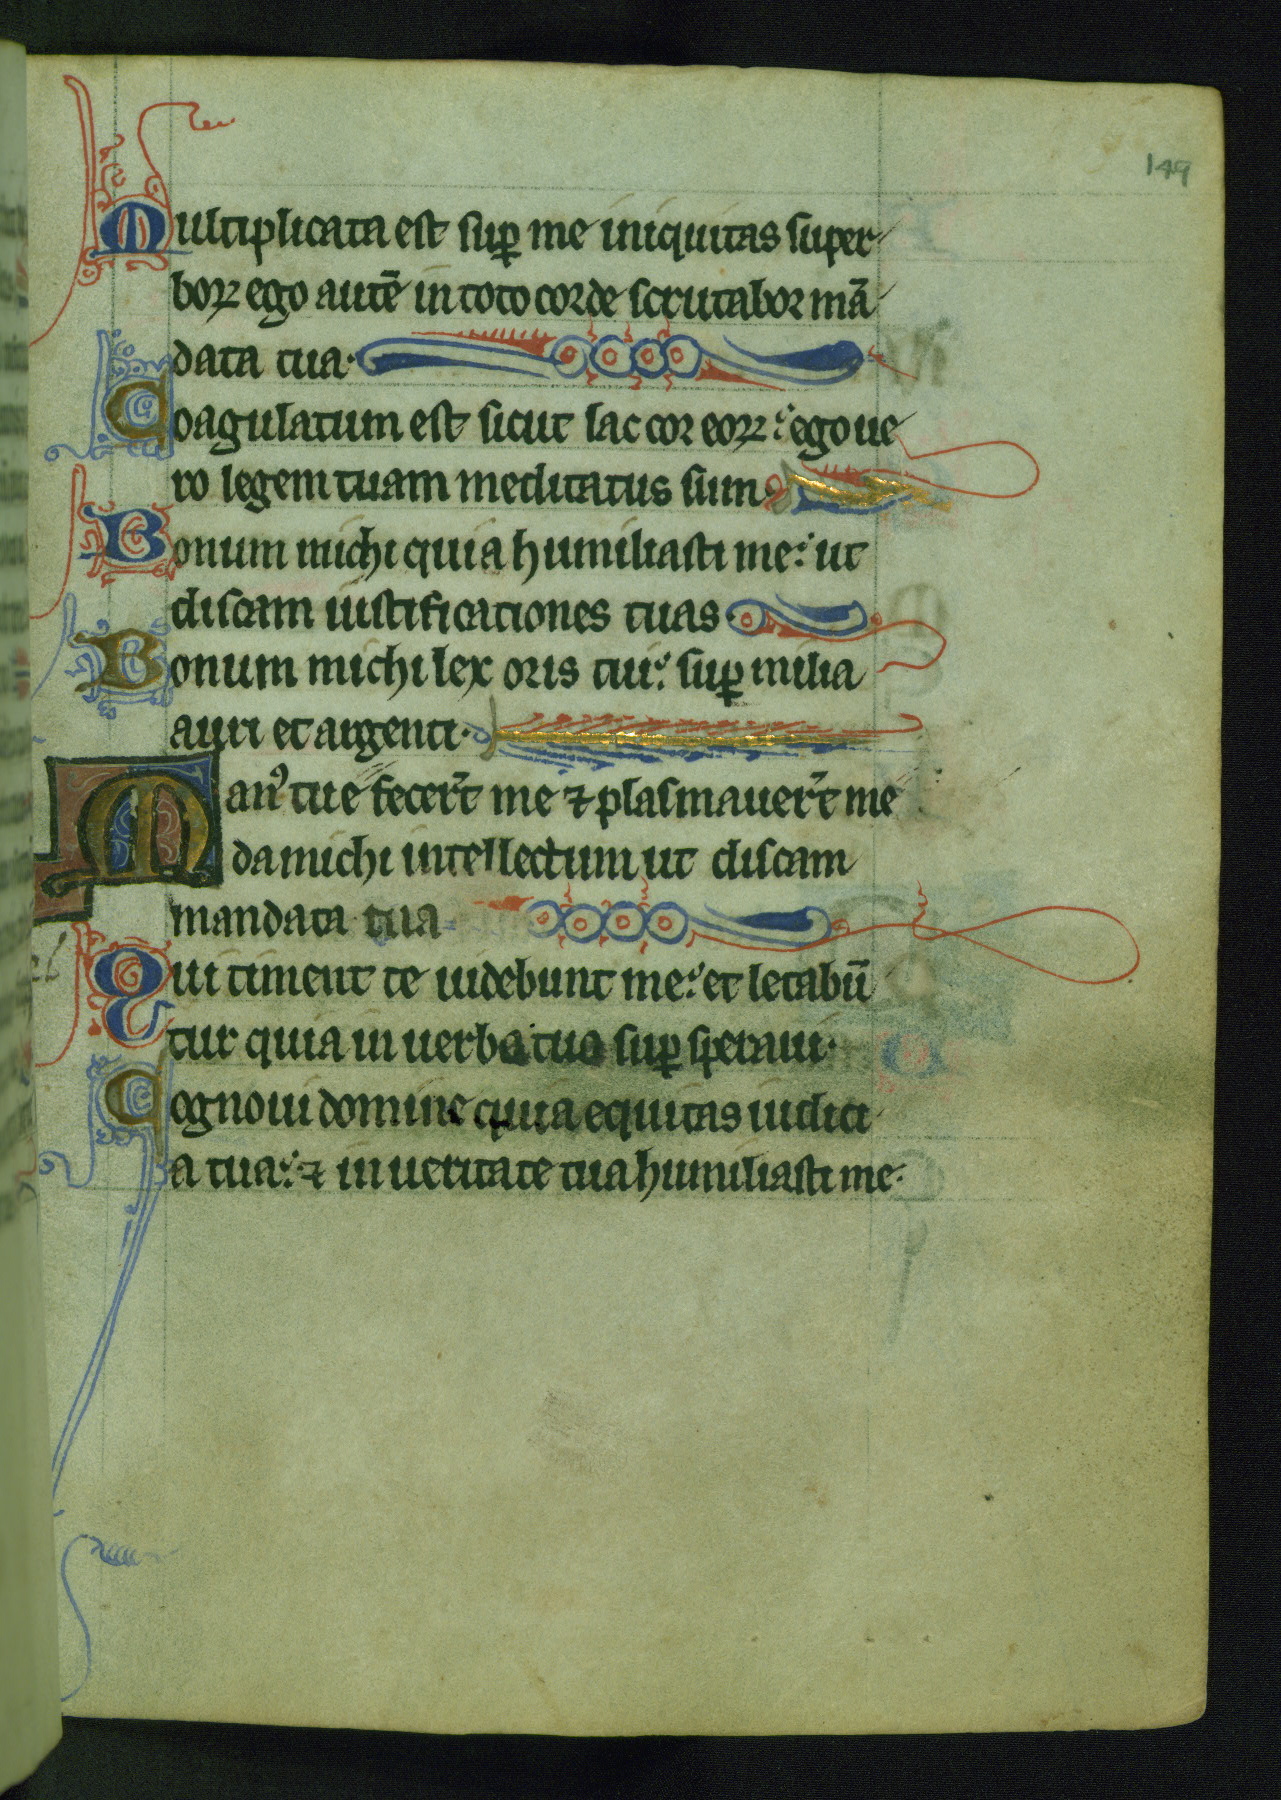 149
Multiplicata est suꝑ me iniquitas super
boꝝ ego autē in toto corde scrutabor mā
data tua·
Coagulatum est sicut lac cor eoꝝ: ego ue
ro legem tuam meditatus sum·
Bonum michi quia humiliasti me: ut
discam iustificationes tuas·
Bonum michi lex oris tui: suꝑ milia
auri et argenti·
Manꝰ tue fecer̄t me ⁊ plasmauer̄t me
da michi intellectum ut discam
mandata tua
Qui timent te uidebunt me: et letabū
tur quia in uerba tua suꝑ speraui·
Cognoui domine quia equitas iudici
a tua: ⁊ in ueritate tua humiliasti me·